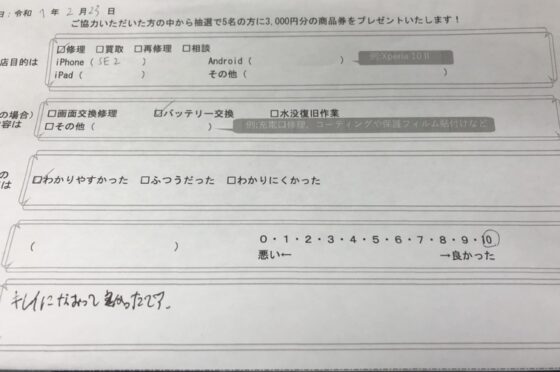 日：令和 7 年 2 月 23 日
ご協力いただいた方の中から抽選で5名の方に3,000円分の商品券をプレゼントいたします！
店目的は
☑修理 □買取 □再修理 □相談
iPhone（ SE2 ） Android（ ） 例:Xperia 10Ⅱ
iPad（ ） その他（ ）
の場合）
内容は
□画面交換修理 ☑バッテリー交換 □水没復旧作業
□その他（ ） 例:充電口修理、コーティングや保護フィルム貼付けなど
の
は
☑わかりやすかった □ふつうだった □わかりにくかった
0・1・2・3・4・5・6・7・8・9・10
（ ） 悪い← →良かった
キレイになおって良かったです。